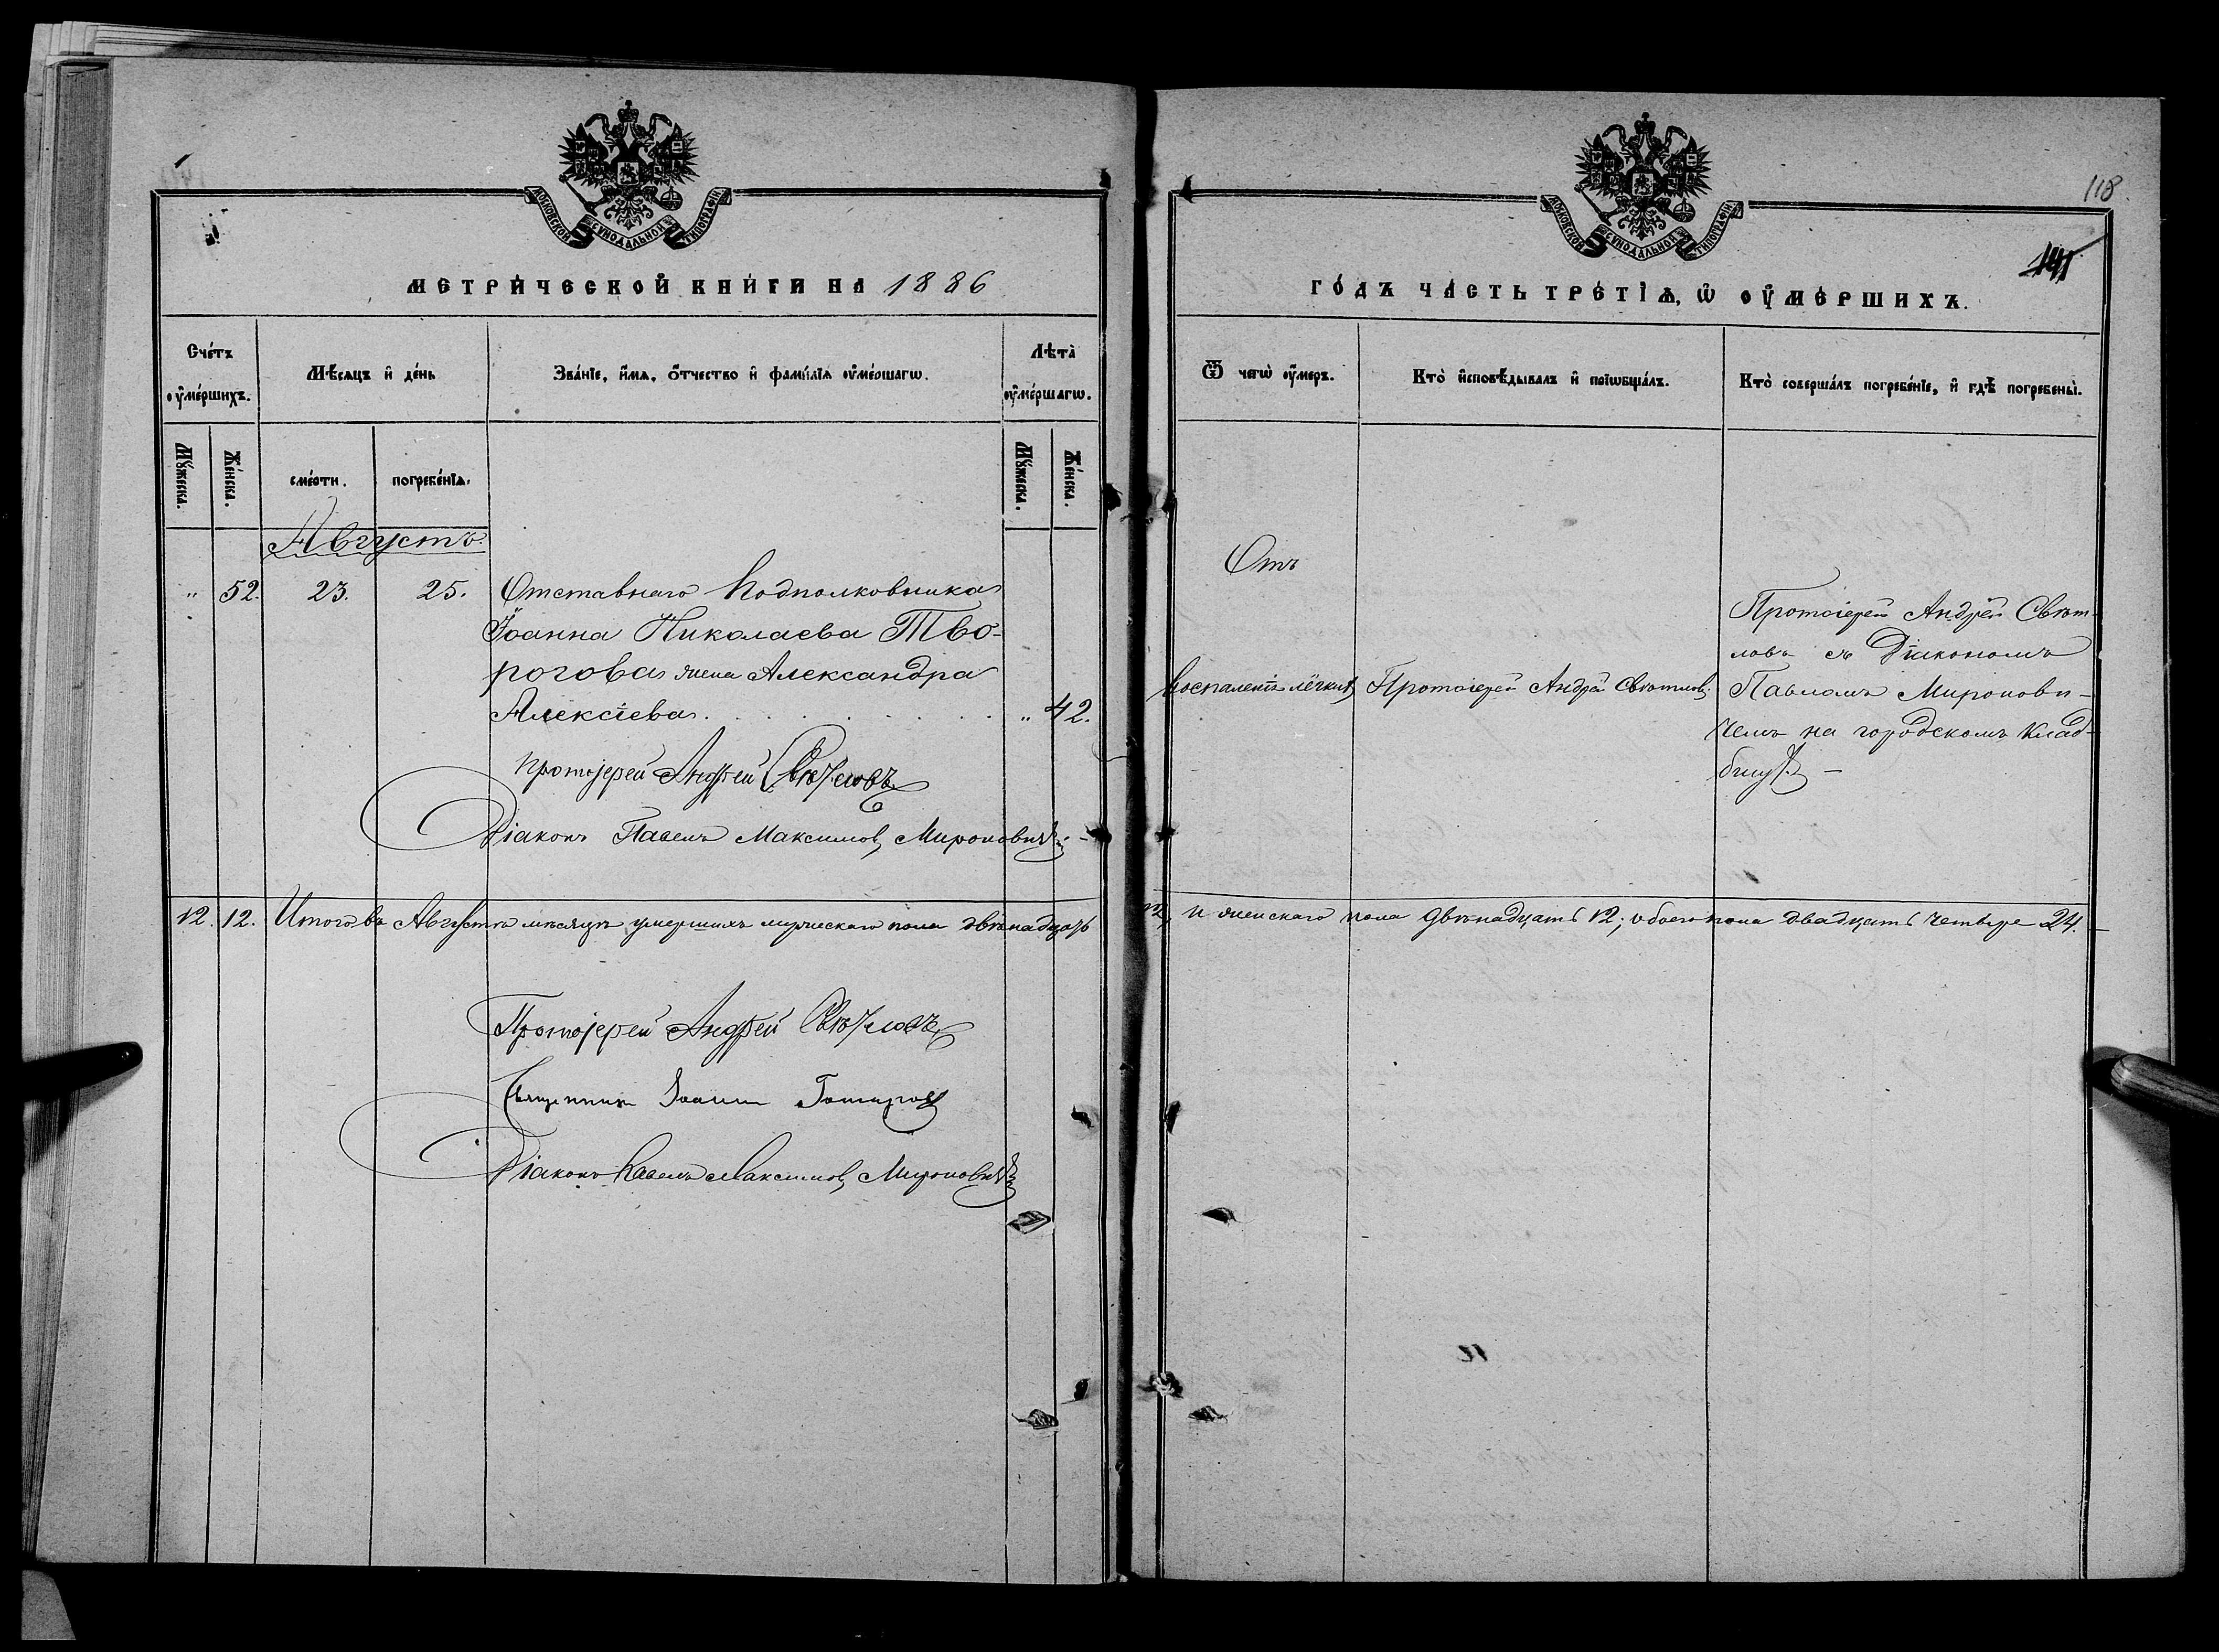 МОСКОВСКОЙ СѴНОДАЛЬНОЙ ТИПОГРАФІИ
МЕТРИ́ЧЕСКОЙ КНИ́ГИ НА 1886
Сче́тъ ᲂу҆ме́ршихъ.
Мѣ́сяцъ и҆ де́нь
Зва́нїе, и҆́мя, ѻ҆́тчество и҆ фамі́лїѧ ᲂу҆ме́ршагѡ.
Лѣта̀ ᲂу҆ме́ршагѡ.
Мꙋ́жеска.
Же́нска.
сме́рти.
погребе́нїѧ.
Мꙋ́жеска.
Же́нска.
Августъ.
" 52. 23. 25. Отставнаго Подполковника
Іоанна Николаева Тво-
рогова жена Александра
Алексіева. . . . . . . . " 42.
Протоіерей Андрей Свѣтловъ
Діаконъ Павелъ Максимов. Мироновичъ
12. 12. Итого въ Августѣ мѣсяцѣ умершихъ мужескаго пола двѣнадцать
Протоіерей Андрей Свѣтловъ
Священникъ Іоаннъ
Діаконъ Павелъ Максимов. Мироновичъ
118
141
МОСКОВСКОЙ СѴНОДАЛЬНОЙ ТИПОГРАФІИ
ГО́ДЪ ЧА́СТЬ ТРЕ́ТІѦ, Ѡ҆ ОУ҆МЕ́РШИХЪ.
Ѿ чегѡ̀ ᲂу҆́меръ.
Кто̀ и҆сповѣ́дывалъ и҆ прїѡбща́лъ.
Кто̀ соверша́лъ погребе́нїе, и҆ гдѣ̀ погребены̀.
Отъ
воспаленія лёгкихъ
Протоіерей Андрей Свѣтловъ
Протоіерей Андрей Свѣт-
ловъ съ Діакономъ
Павломъ Миронови-
чемъ на городскомъ клад-
бищѣ. —
12, и женскаго пола двѣнадцать 12; обоего пола двадцать четыре 24. —